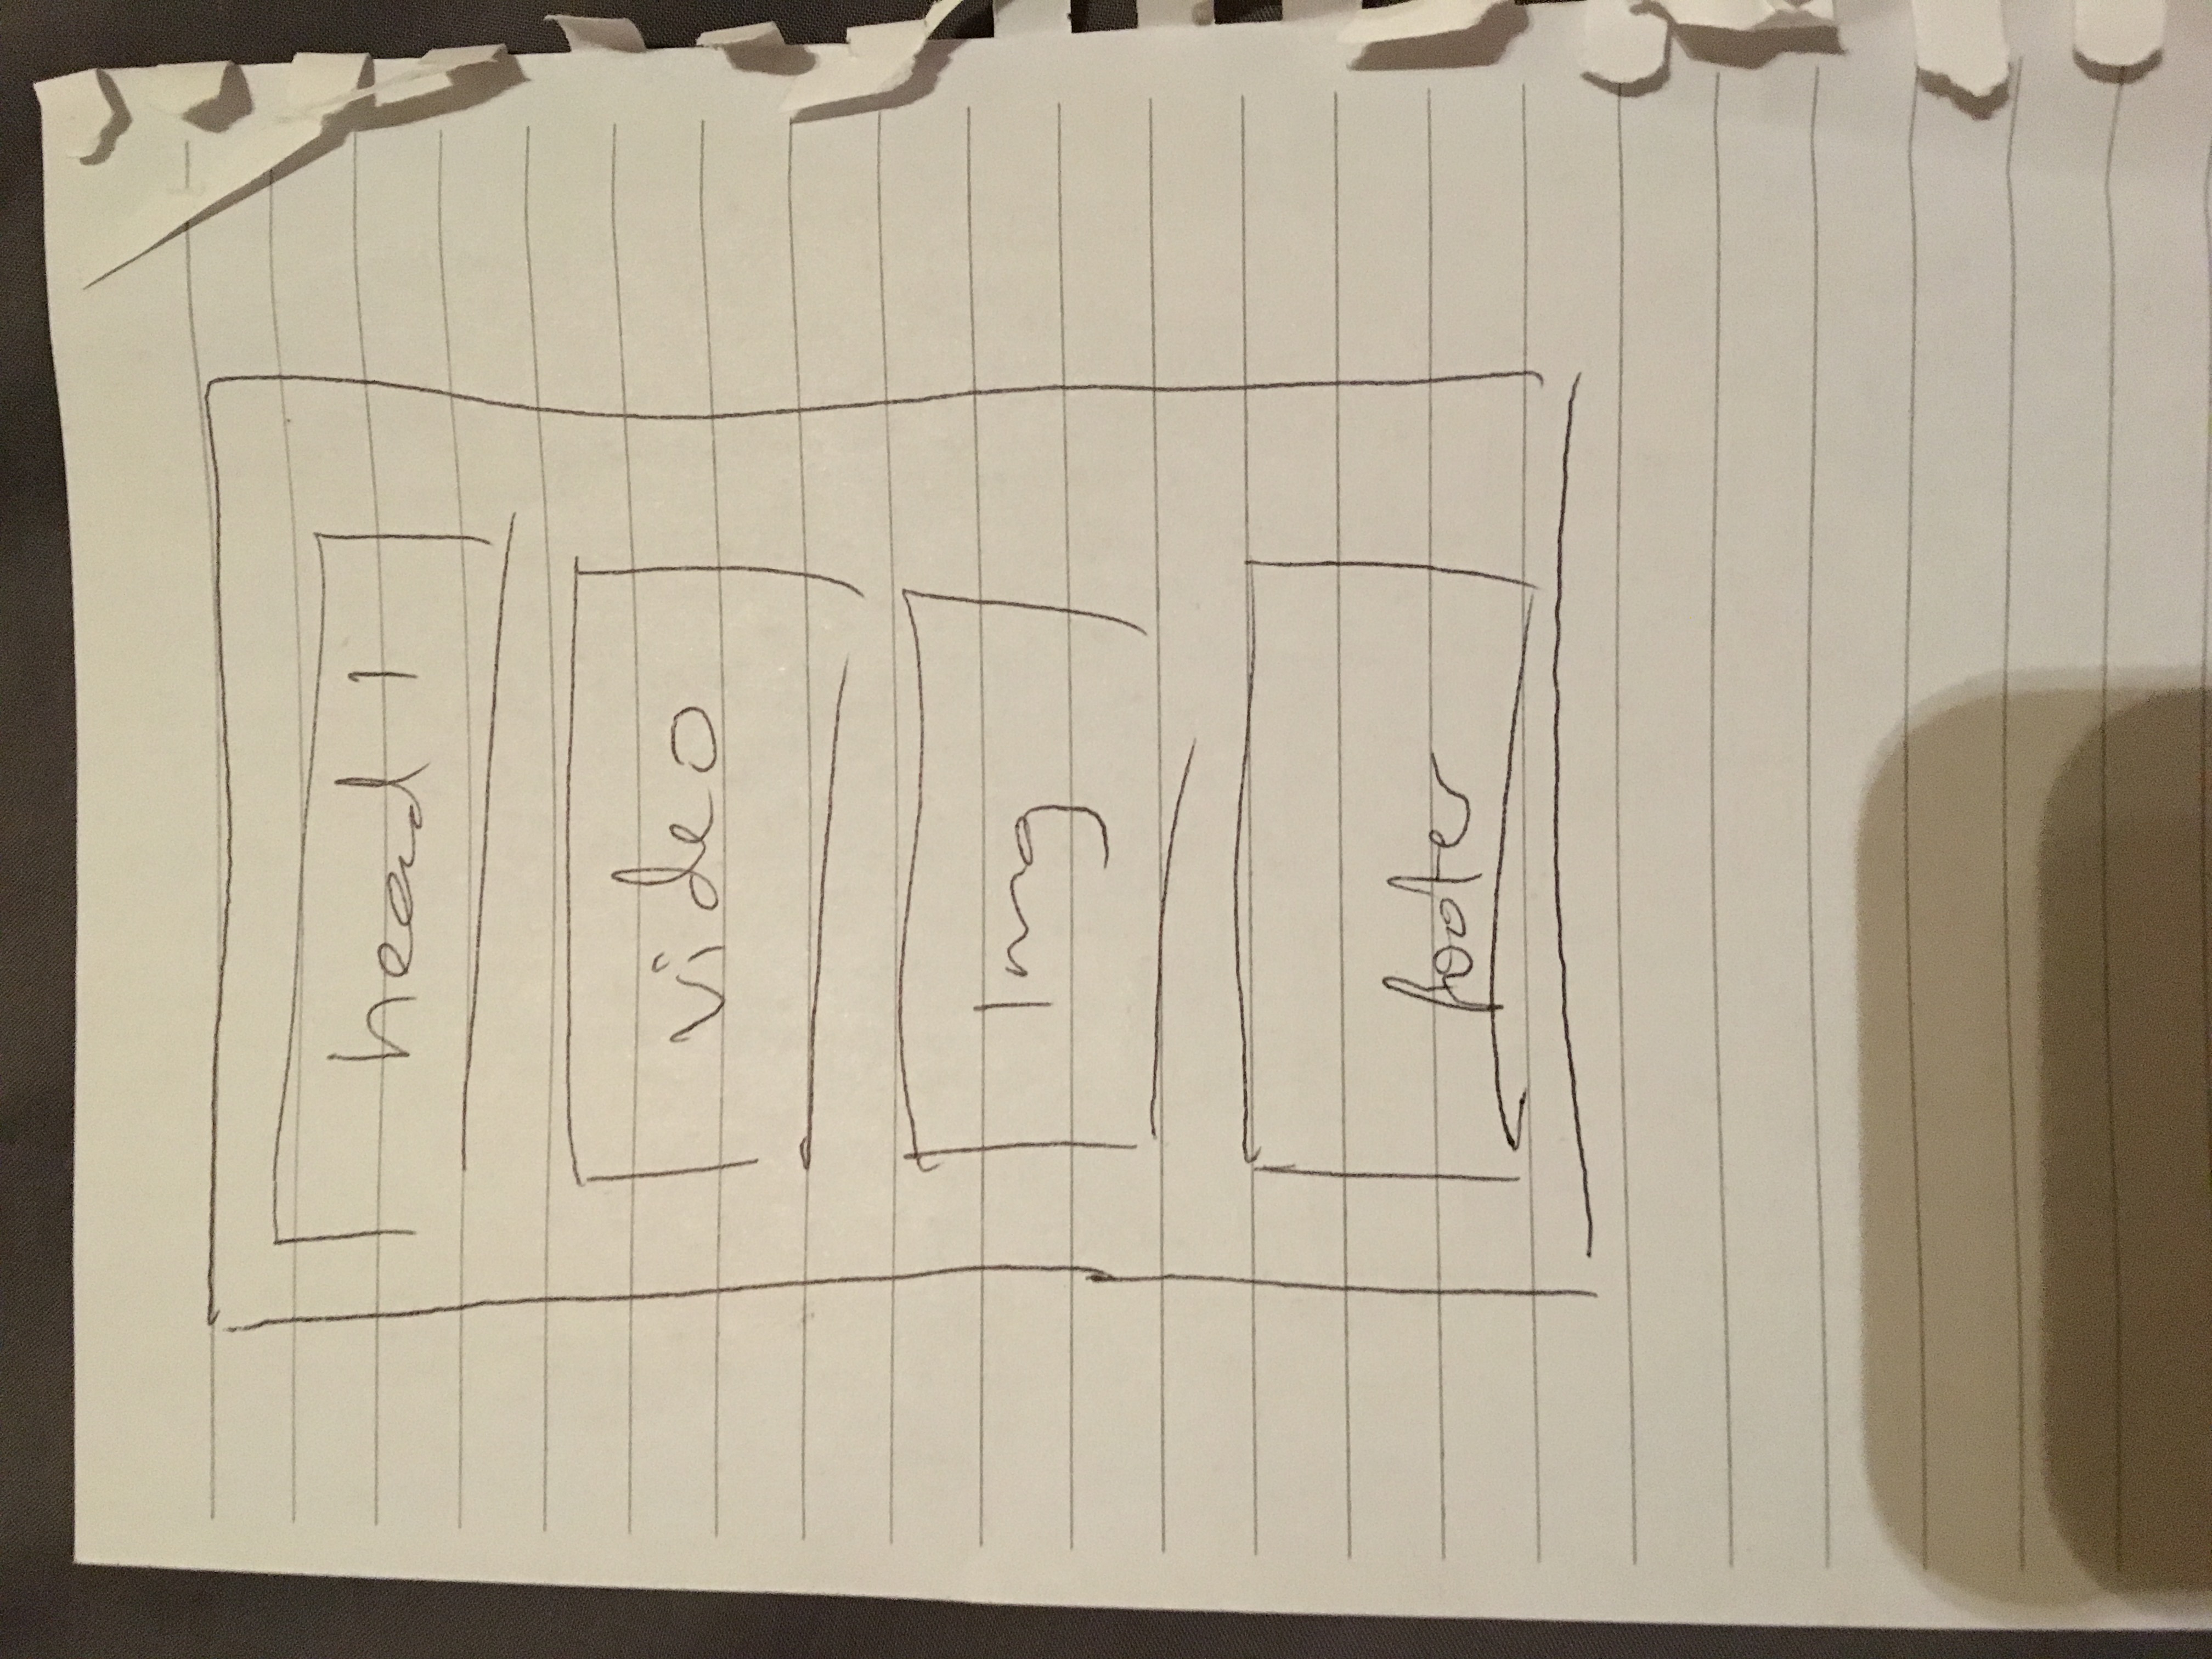 head 1
video
Img
footer